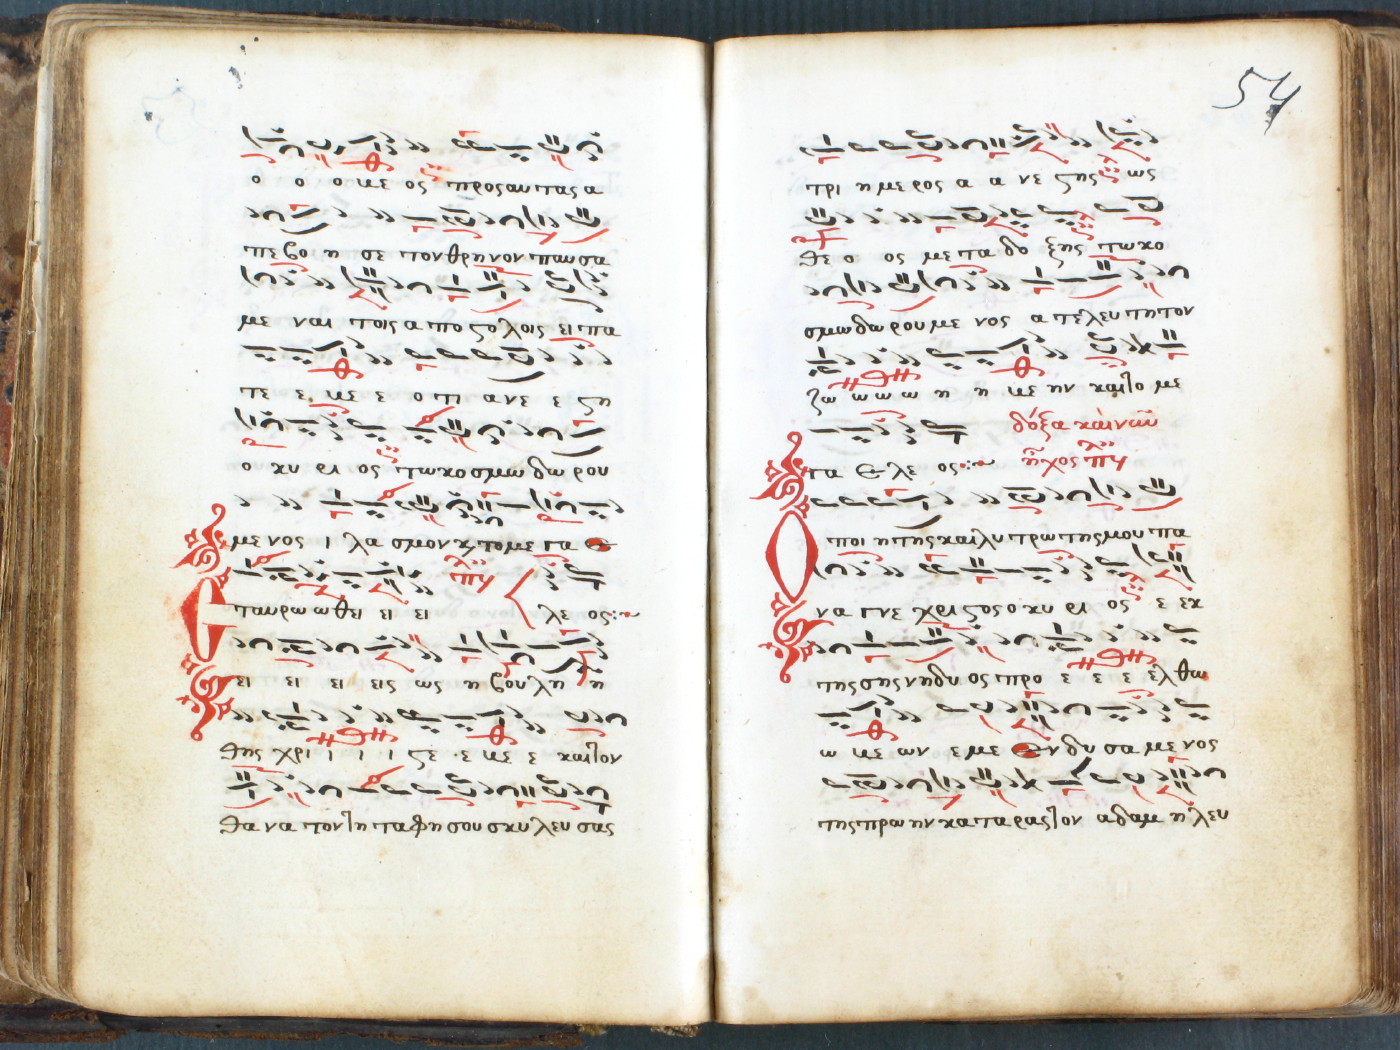 ο ο ο με ος προς αυτας α
πε βο η σε τον θρηνον παυσα
με ναι τοις α πο ϛο λοις ει πα
τε ε με ε ο τι α νε ε ϛη
ο κυ ρι ος τω κοσμω δω ρου
με νος ι λα σμον κ το με γα ε
ταυρω ω θει ει ει λε ος
ει ει ει εις ως η βου λη η
θης χρι ι ι ι ϛε ε με ε και τον
θα να τον τη ταφη σου σκυ λευ σας
54
τρι η με ρος α α νε ϛης ως
θε ο ος με τα δο ξης τω κο
σμω δω ρου με νος α τελευ τη τον
ζω ω ω ω η η με ην και το με
δόξα καὶ νῦν
γα ε λε ος ἦχος πλ
Ο ποι η της και λυ τρω της μου πα
να γνε χρι ϛος ο κυ ρι ος ε εκ
της σης νηδυ ος προ ε ε ε ελ θω
ω με ων ε με εν δυ σα με νος
της πρω ην κα τα ρας τον αδαμ η λευ